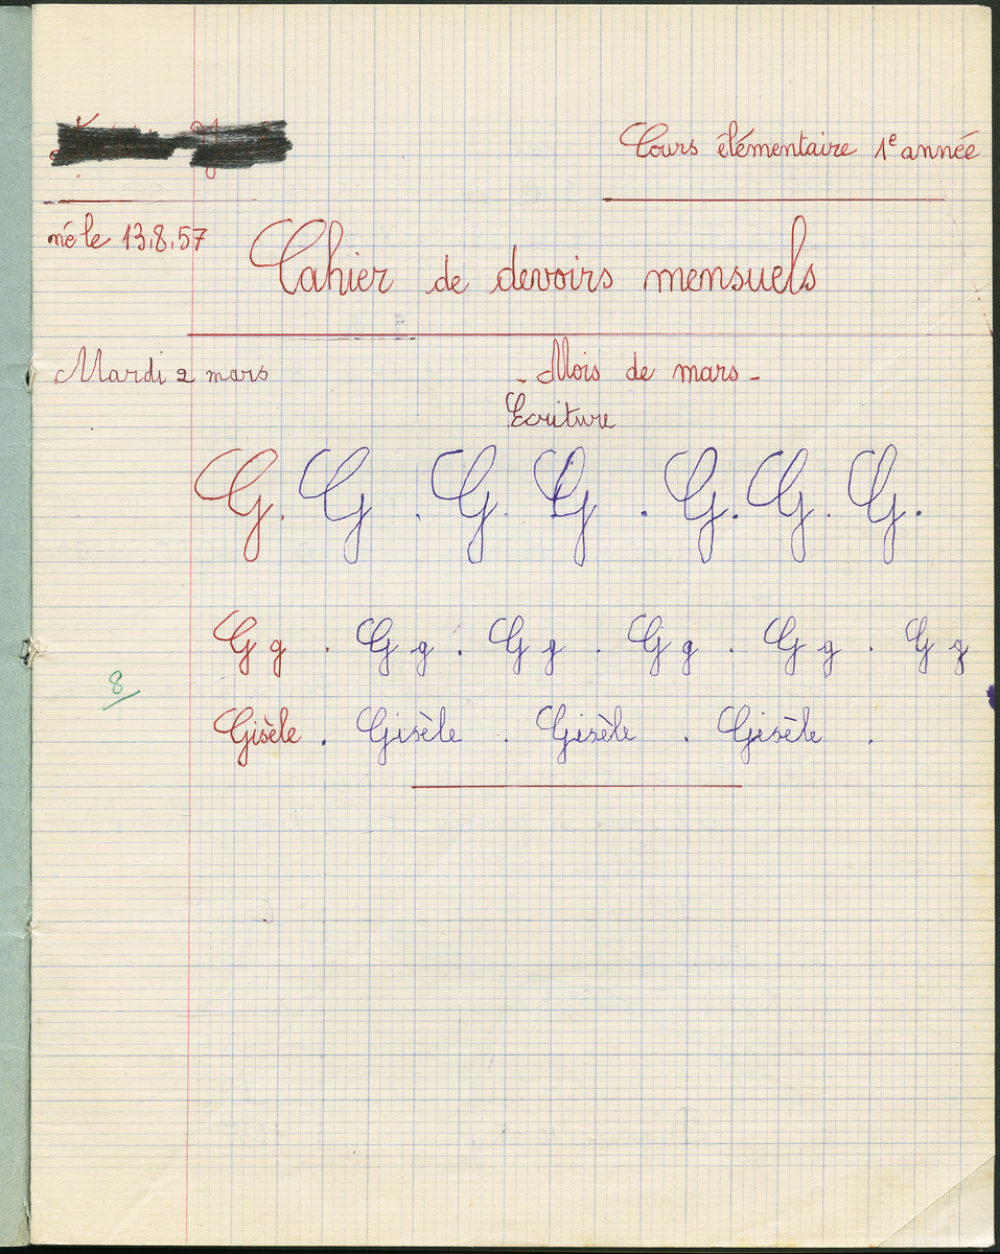 Cours élémentaire 1e année
né le 13.8.57
Cahier de devoirs mensuels
Mardi 2 mars
- Mois de mars -
Ecriture
G. G . G. G . G. G. G.
G g . G g . G g . G g . G g . G g
8
Gisèle . Gisèle . Gisèle . Gisèle .